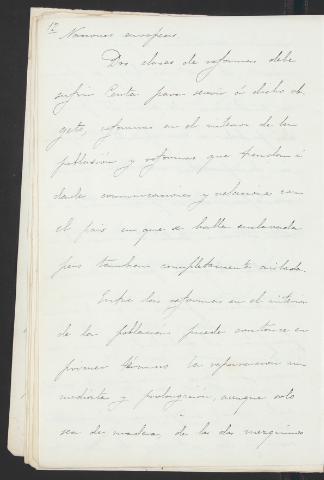 12
Naciones europeas.
Dos clases de reformas debe
sufrir Ceuta para servir á dicho ob-
geto, reformas en el interior de la
poblasion y reformas que tiendan á
darle comunicacion y relaciones con
el pais en que se halla enclavada
pero tambien completamente aislada.
Entre las reformas en el interior
de la poblacion puede contarse en
primer término la reparacion in-
mediata y prolongacion, aunque solo
sea de madera, de los dos